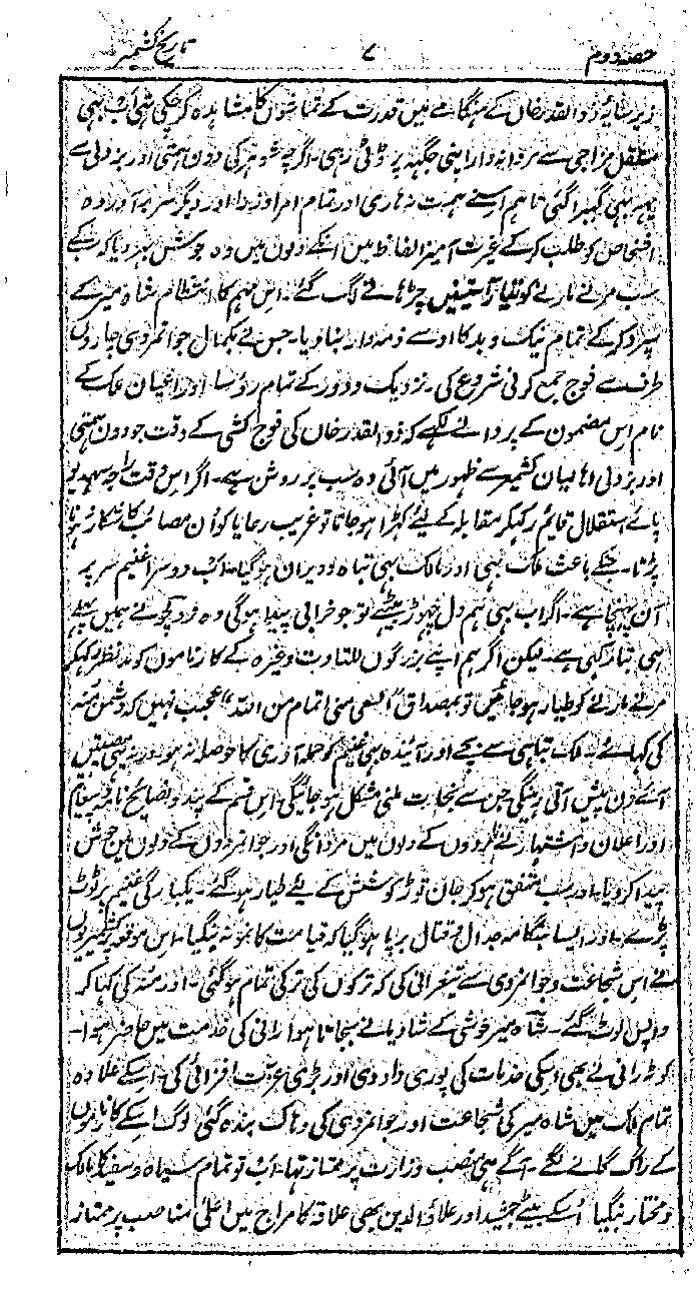 حصہ دوم ۷ تاریخ کشمیر
زیر سایہ ذوالقدر خاں کے ہنگامے میں قدرت کے تماشوں کا مشاہدہ کر چکی تھی اب بہی
مستقل مزاجی سے مردانہ وار اپنی جگہہ پر ڈٹی رہی۔ اگرچہ شوہر کی دون ہمتی اور بزدلی سے
پہر بہی گہبرا گئی تاہم اسنے ہمت نہ ہاری اور تمام امراؤ وزرا اور دیگر سربرآوردہ
اشخاص کو طلب کر کے غیرت آمیز الفاظ میں انکے دلوں میں وہ جوش بہر دیا کہ سبکے
سب مرنے مارنے کو تلیار آستینیں چڑہانے لگ گئے۔ اس مہم کا انتظام شاہ میر کے
سپرد کر کے تمام نیک و بد کا اوسے ذمہ دار بنا دیا۔ جس نے بکمال جوانمردی چاروں
طرف سے فوج جمع کرنی شروع کی۔ نزدیک و دور کے تمام رؤسا اور اعیان ملک کے
نام اس مضمون کے پروانے لکہے کہ ذوالقدر خاں کی فوج کشی کے وقت جو دون ہمتی
اور بزدلی اہالیان کشمیر سے ظہور میں آئی وہ سب پر روشن ہے۔ اگر اس وقت راجہ سہدیو
پائے استقلال قایم رکہکر مقابلہ کے لیئے کہڑا ہو جاتا تو غریب رعایا کو ان مصائب کا شکار نہ ہونا
پڑتا۔ جنکے باعث ملک بہی اور مالک بہی تباہ و ویران ہو گیا۔ اب دوسرا غنیم سر پر
آن پہنچا ہے۔ اگر اب بہی ہم دل چہوڑ بیٹہے تو جو خرابی پیدا ہوگی وہ فرد کچو نے ہمیں پہلے
ہی بتا رکہی ہے۔ لیکن اگر ہم اپنے بزرگوں للتادت وغیرہ کے کارناموں کو مد نظر رکہکر
مرنے مارنے کو طیار ہو جائیں تو بمصداق "السعی منی اتمام من اللہ" عجب نہیں کہ دشمن منہ
کی کہائے۔ ملک تباہی سے بچے اور آیندہ بہی غنیم کو حملہ آوری کا حوصلہ نہ ہو۔ ورنہ یہی مصیبتیں
آئے دن پیش آتی رہینگی جن سے نجات ملنی مشکل ہو جائیگی۔ اس قسم کے پند و نصائح نامہ و پیغام
اور اعلان و اشتہار نے نامردوں کے دلوں میں مردانگی اور جوانمردوں کے دلوں میں جوش
پیدا کر دیا۔ اور سب متفق ہو کر جان توڑ کوشش کے لیئے طیار ہو گئے۔ یکبارگی غنیم پر ٹوٹ
پڑے۔ اور ایسا ہنگامہ جدال و قتال برپا ہو گیا کہ قیامت کا نمونہ بنگیا۔ اس موقعہ پر کشمیریوں
نے اس شجاعت و جوانمردی سے تیغ رانی کی کہ ترکوں کی ترکی تمام ہو گئی۔ اور منہ کی کہا کر
واپس لوٹ گئے۔ شاہ میر خوشی کے شادیانے بجاتا ہوا رانی کی خدمت میں حاضر ہوا۔
کوٹہ رانی نے بھی اسکی خدمات کی پوری داد دی اور بڑی عزت افزائی کی۔ اسکے علاوہ
تمام ملک میں شاہ میر کی شجاعت اور جوانمردی کی دہاک بندہ گئی لوگ اسکے کارناموں
کے راگ گانے لگے۔ آگے ہی منصب وزارت پر ممتاز تہا۔ اب تو تمام سیاہ و سفید کا مالک
و مختار بنگیا اسکے بیٹے جمشید اور علاؤالدین بھی علاقہ کامراج میں اعلیٰ مناصب پر ممتاز